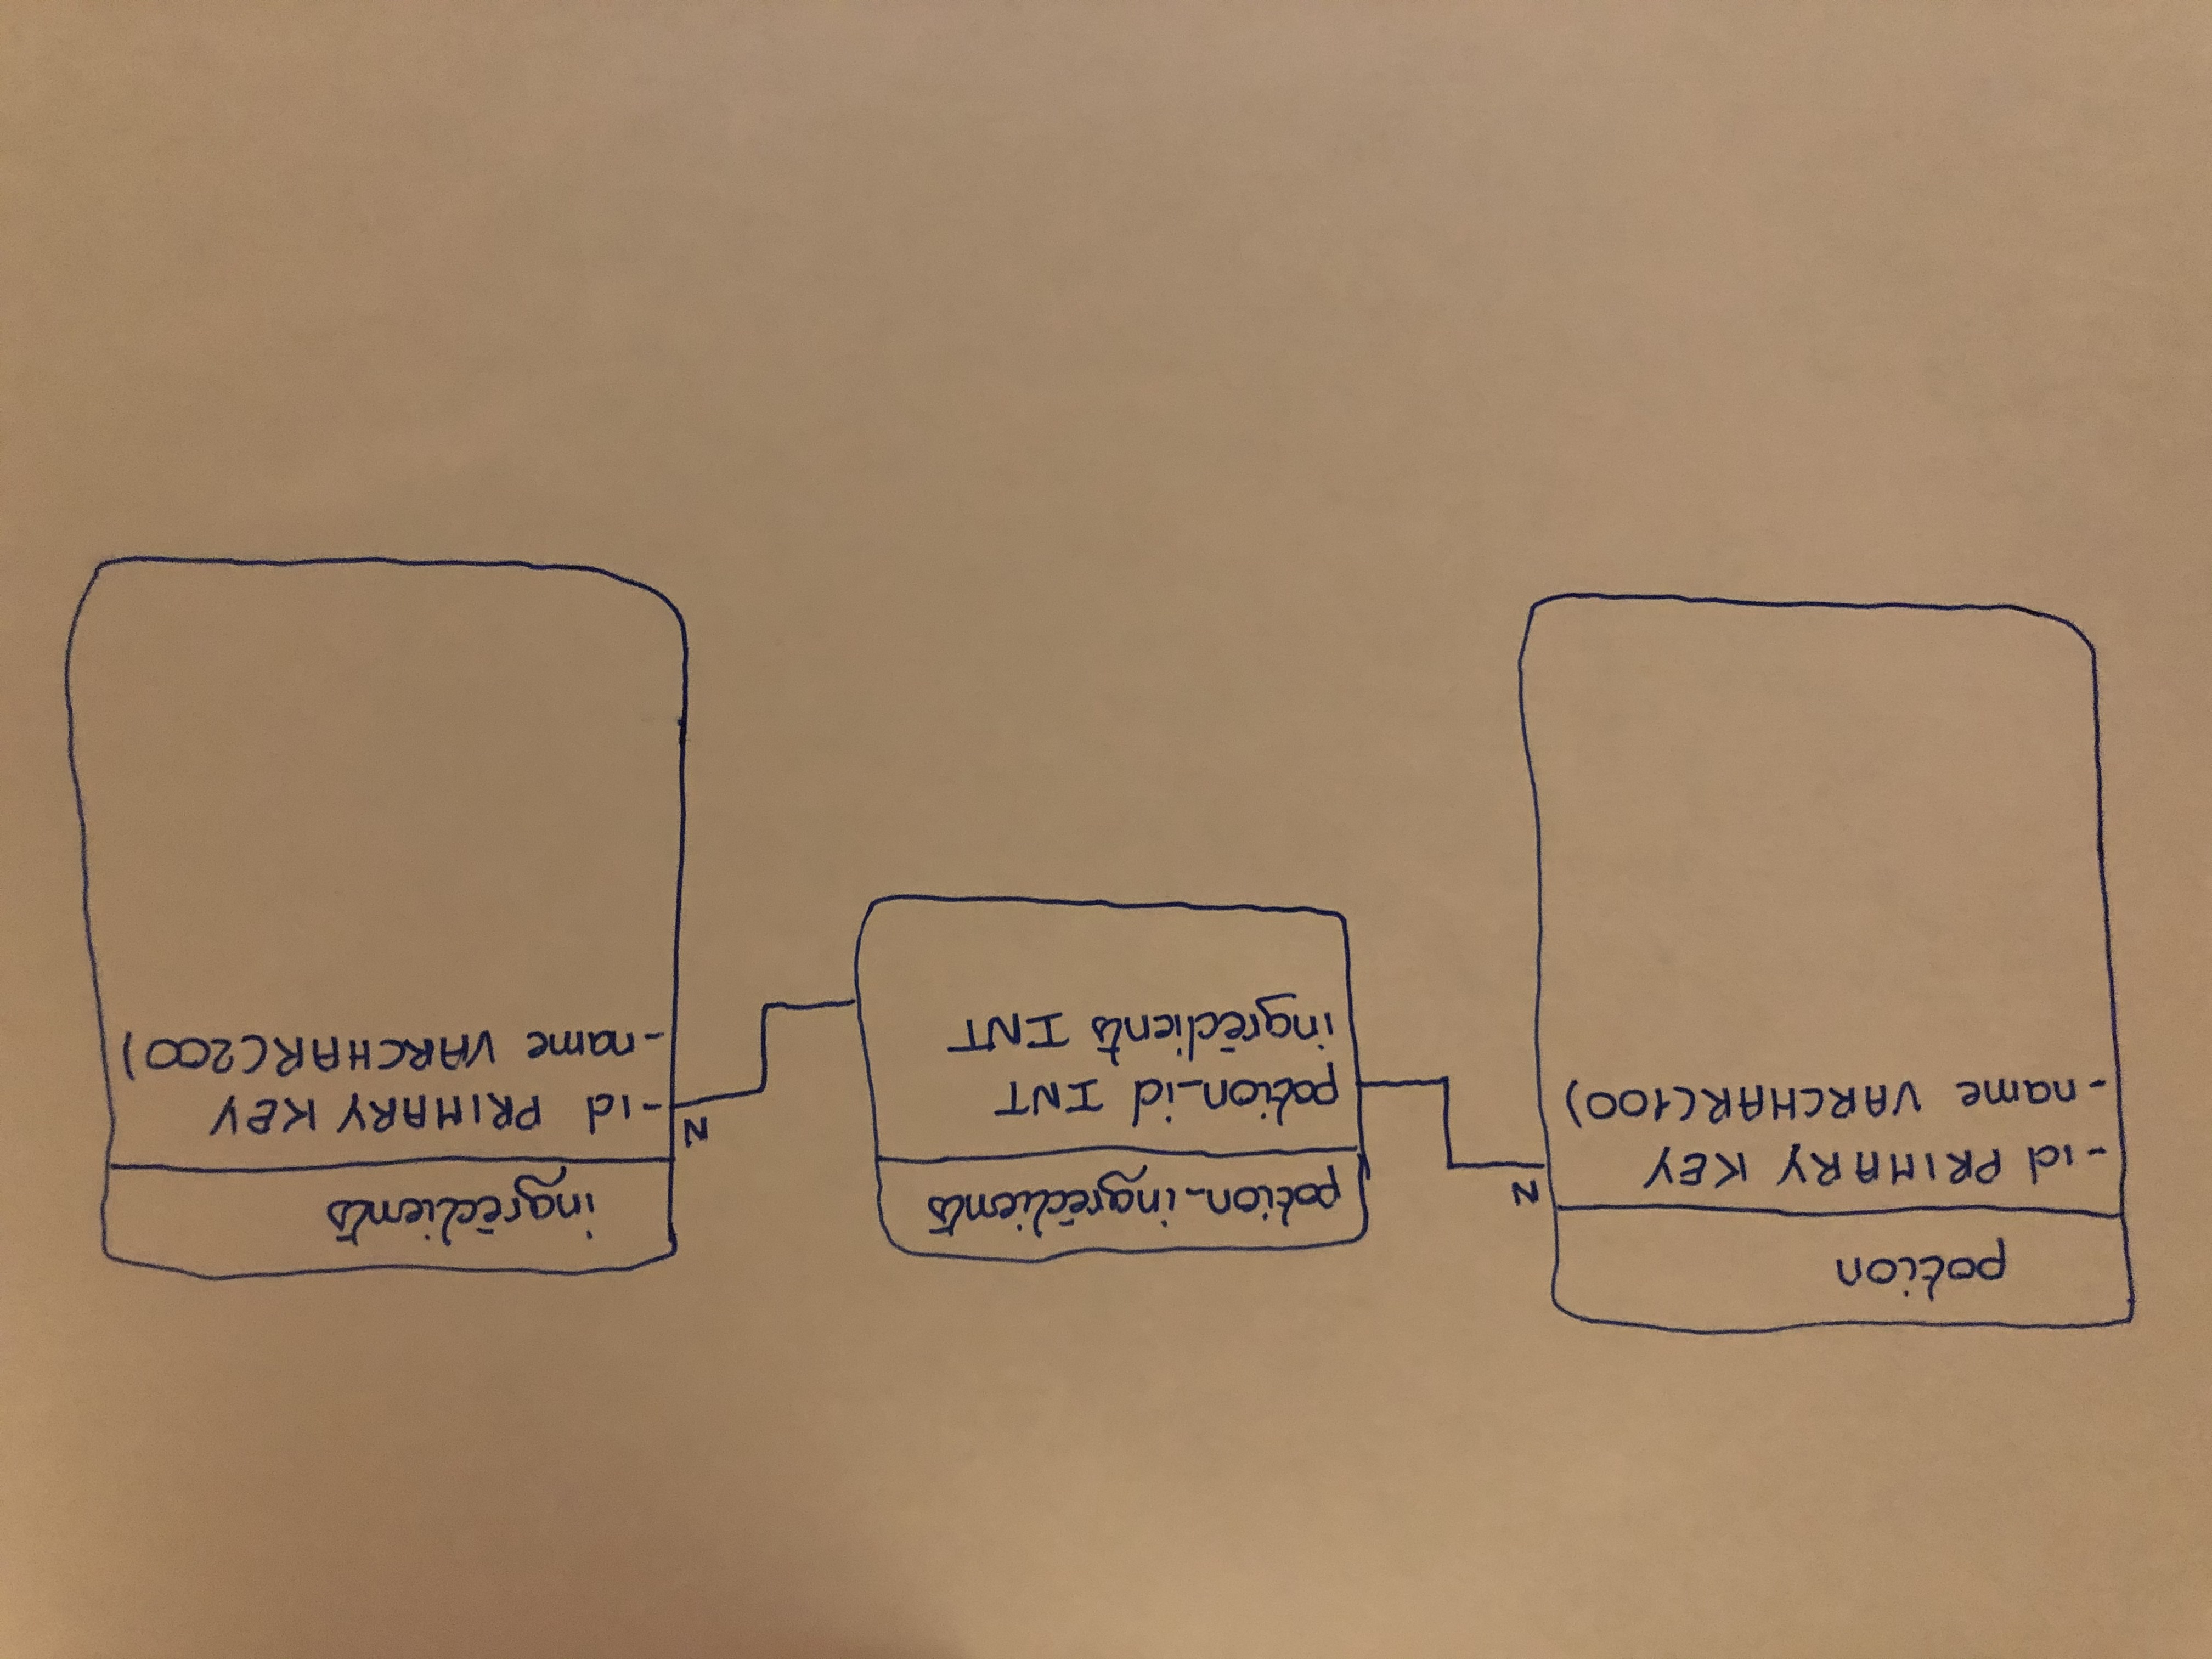 potion
-id PRIMARY KEY
-name VARCHAR(100)
N
potion_ingrédients
potion_id INT
ingrédients INT
N
ingrédients
-id PRIMARY KEY
-name VARCHAR(200)